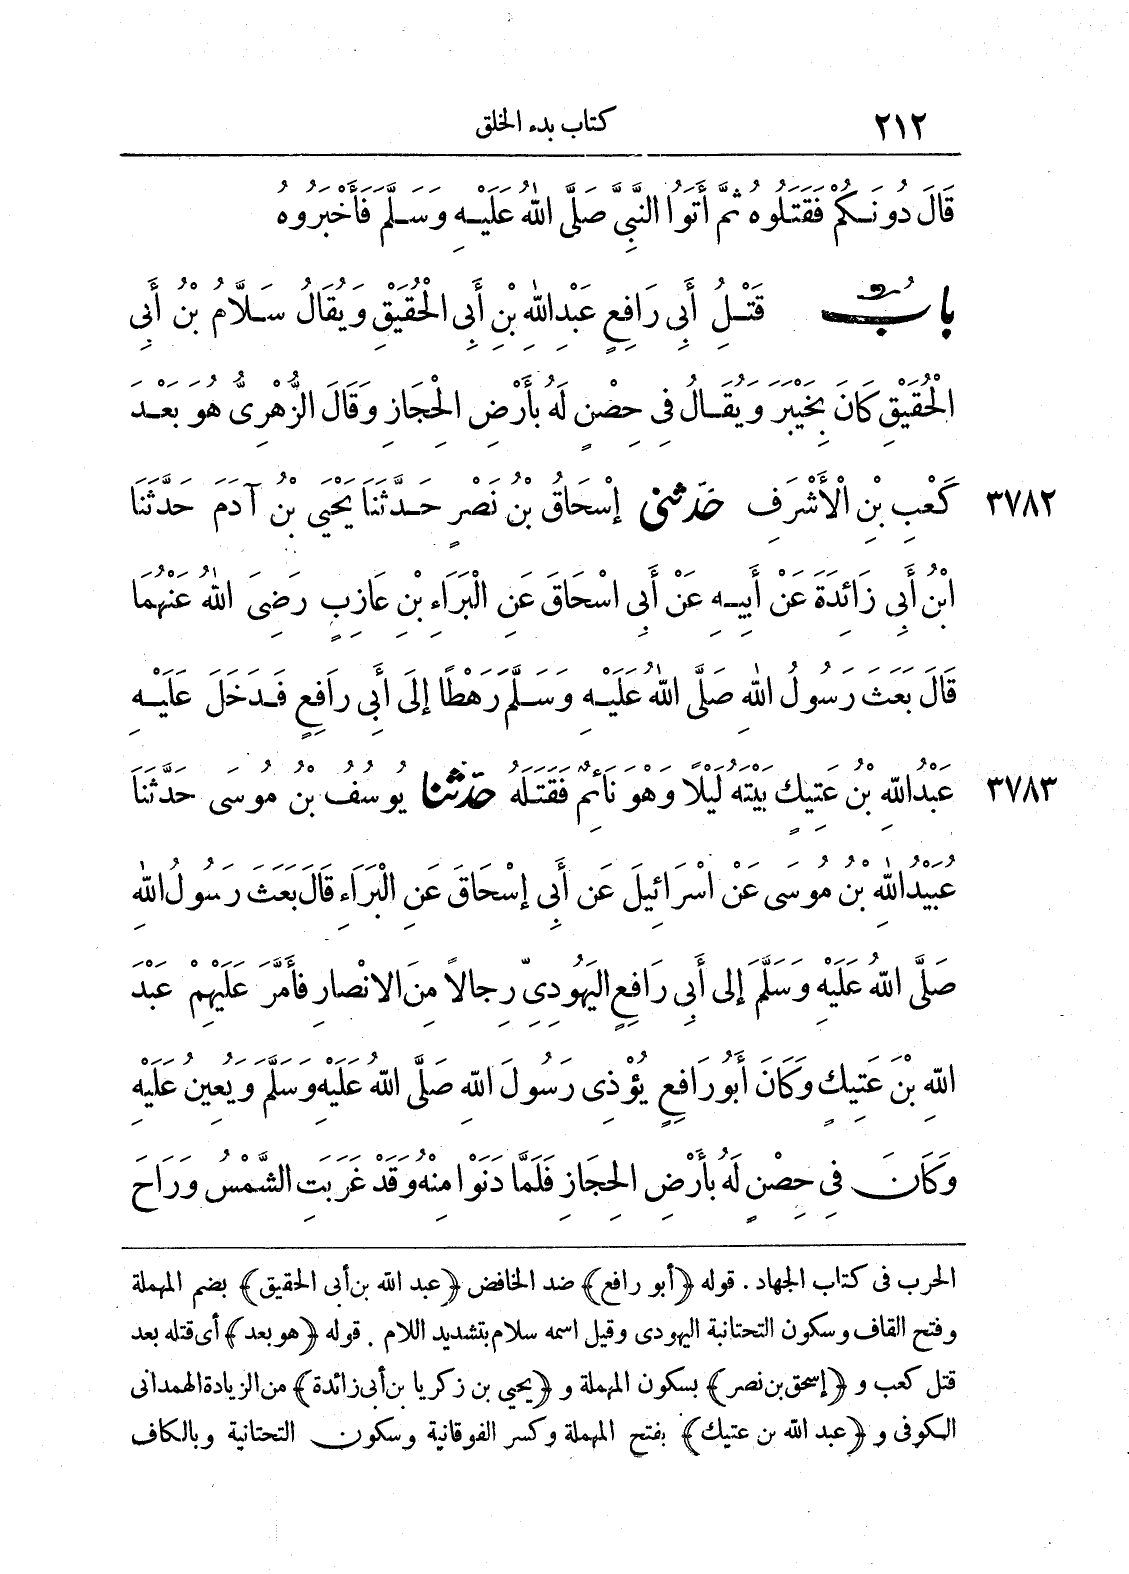 ٢١٢ كتاب بدء الخلق
قَالَ دُونَكُمْ فَقَتَلُوهُ ثُمَّ أَتَوُا النَّبِيَّ صَلَّى اللّٰهُ عَلَيْهِ وَسَلَّمَ فَأَخْبَرُوهُ
بَابُ قَتْلِ أَبِي رَافِعٍ عَبْدِ اللّٰهِ بْنِ أَبِي الْحُقَيْقِ وَيُقَالُ سَلَّامُ بْنُ أَبِي
الْحُقَيْقِ كَانَ بِخَيْبَرَ وَيُقَالُ فِي حِصْنٍ لَهُ بِأَرْضِ الْحِجَازِ وَقَالَ الزُّهْرِىُّ هُوَ بَعْدَ
كَعْبِ بْنِ الْأَشْرَفِ حَدَّثَنِي إِسْحَاقُ بْنُ نَصْرٍ حَدَّثَنَا يَحْيَى بْنُ آدَمَ حَدَّثَنَا ٣٧٨٢
ابْنُ أَبِي زَائِدَةَ عَنْ أَبِيهِ عَنْ أَبِي اسْحَاقَ عَنِ الْبَرَاءِ بْنِ عَازِبٍ رَضِىَ اللّٰهُ عَنْهُمَا
قَالَ بَعَثَ رَسُولُ اللّٰهِ صَلَّى اللّٰهُ عَلَيْهِ وَسَلَّمَ رَهْطًا إِلَى أَبِي رَافِعٍ فَدَخَلَ عَلَيْهِ
عَبْدُ اللّٰهِ بْنُ عَتِيكٍ بَيْتَهُ لَيْلًا وَهْوَ نَائِمٌ فَقَتَلَهُ حَدَّثَنَا يُوسُفُ بْنُ مُوسَى حَدَّثَنَا ٣٧٨٣
عُبَيْدُ اللّٰهِ بْنُ مُوسَى عَنْ اسْرَائِيلَ عَن أَبِي إِسْحَاقَ عَنِ الْبَرَاءِ قَالَ بَعَثَ رَسُولُ اللّٰهِ
صَلَّى اللّٰهُ عَلَيْهِ وَسَلَّمَ إِلَى أَبِي رَافِعٍ الْيَهُودِىِّ رِجَالاً مِنَ الانْصَارِ فَأَمَّرَ عَلَيْهِمْ عَبْدَ
اللّٰهِ بْنَ عَتِيكٍ وَكَانَ أَبُو رَافِعٍ يُؤْذِى رَسُولَ اللّٰهِ صَلَّى اللّٰهُ عَلَيْهِ وَسَلَّمَ وَيُعِينُ عَلَيْهِ
وَكَانَ فِي حِصْنٍ لَهُ بِأَرْضِ الْحِجَازِ فَلَمَّا دَنَوْا مِنْهُ وَقَدْ غَرَبَتِ الشَّمْسُ وَرَاحَ
الحرب فى كتاب الجهاد . قوله ﴿أبو رافع﴾ ضد الخافض ﴿عبد الله بن أبى الحقيق﴾ بضم المهملة
وفتح القاف وسكون التحتانية اليهودى وقيل اسمه سلام بتشديد اللام . قوله ﴿هو بعد﴾ أى قتله بعد
قتل كعب و ﴿إسحق بن نصر﴾ بسكون المهملة و ﴿يحيى بن زكريا بن أبى زائدة﴾ من الزيادة الهمدانى
الكوفى و ﴿عبد الله بن عتيك﴾ بفتح المهملة وكسر الفوقانية وسكون التحتانية وبالكاف